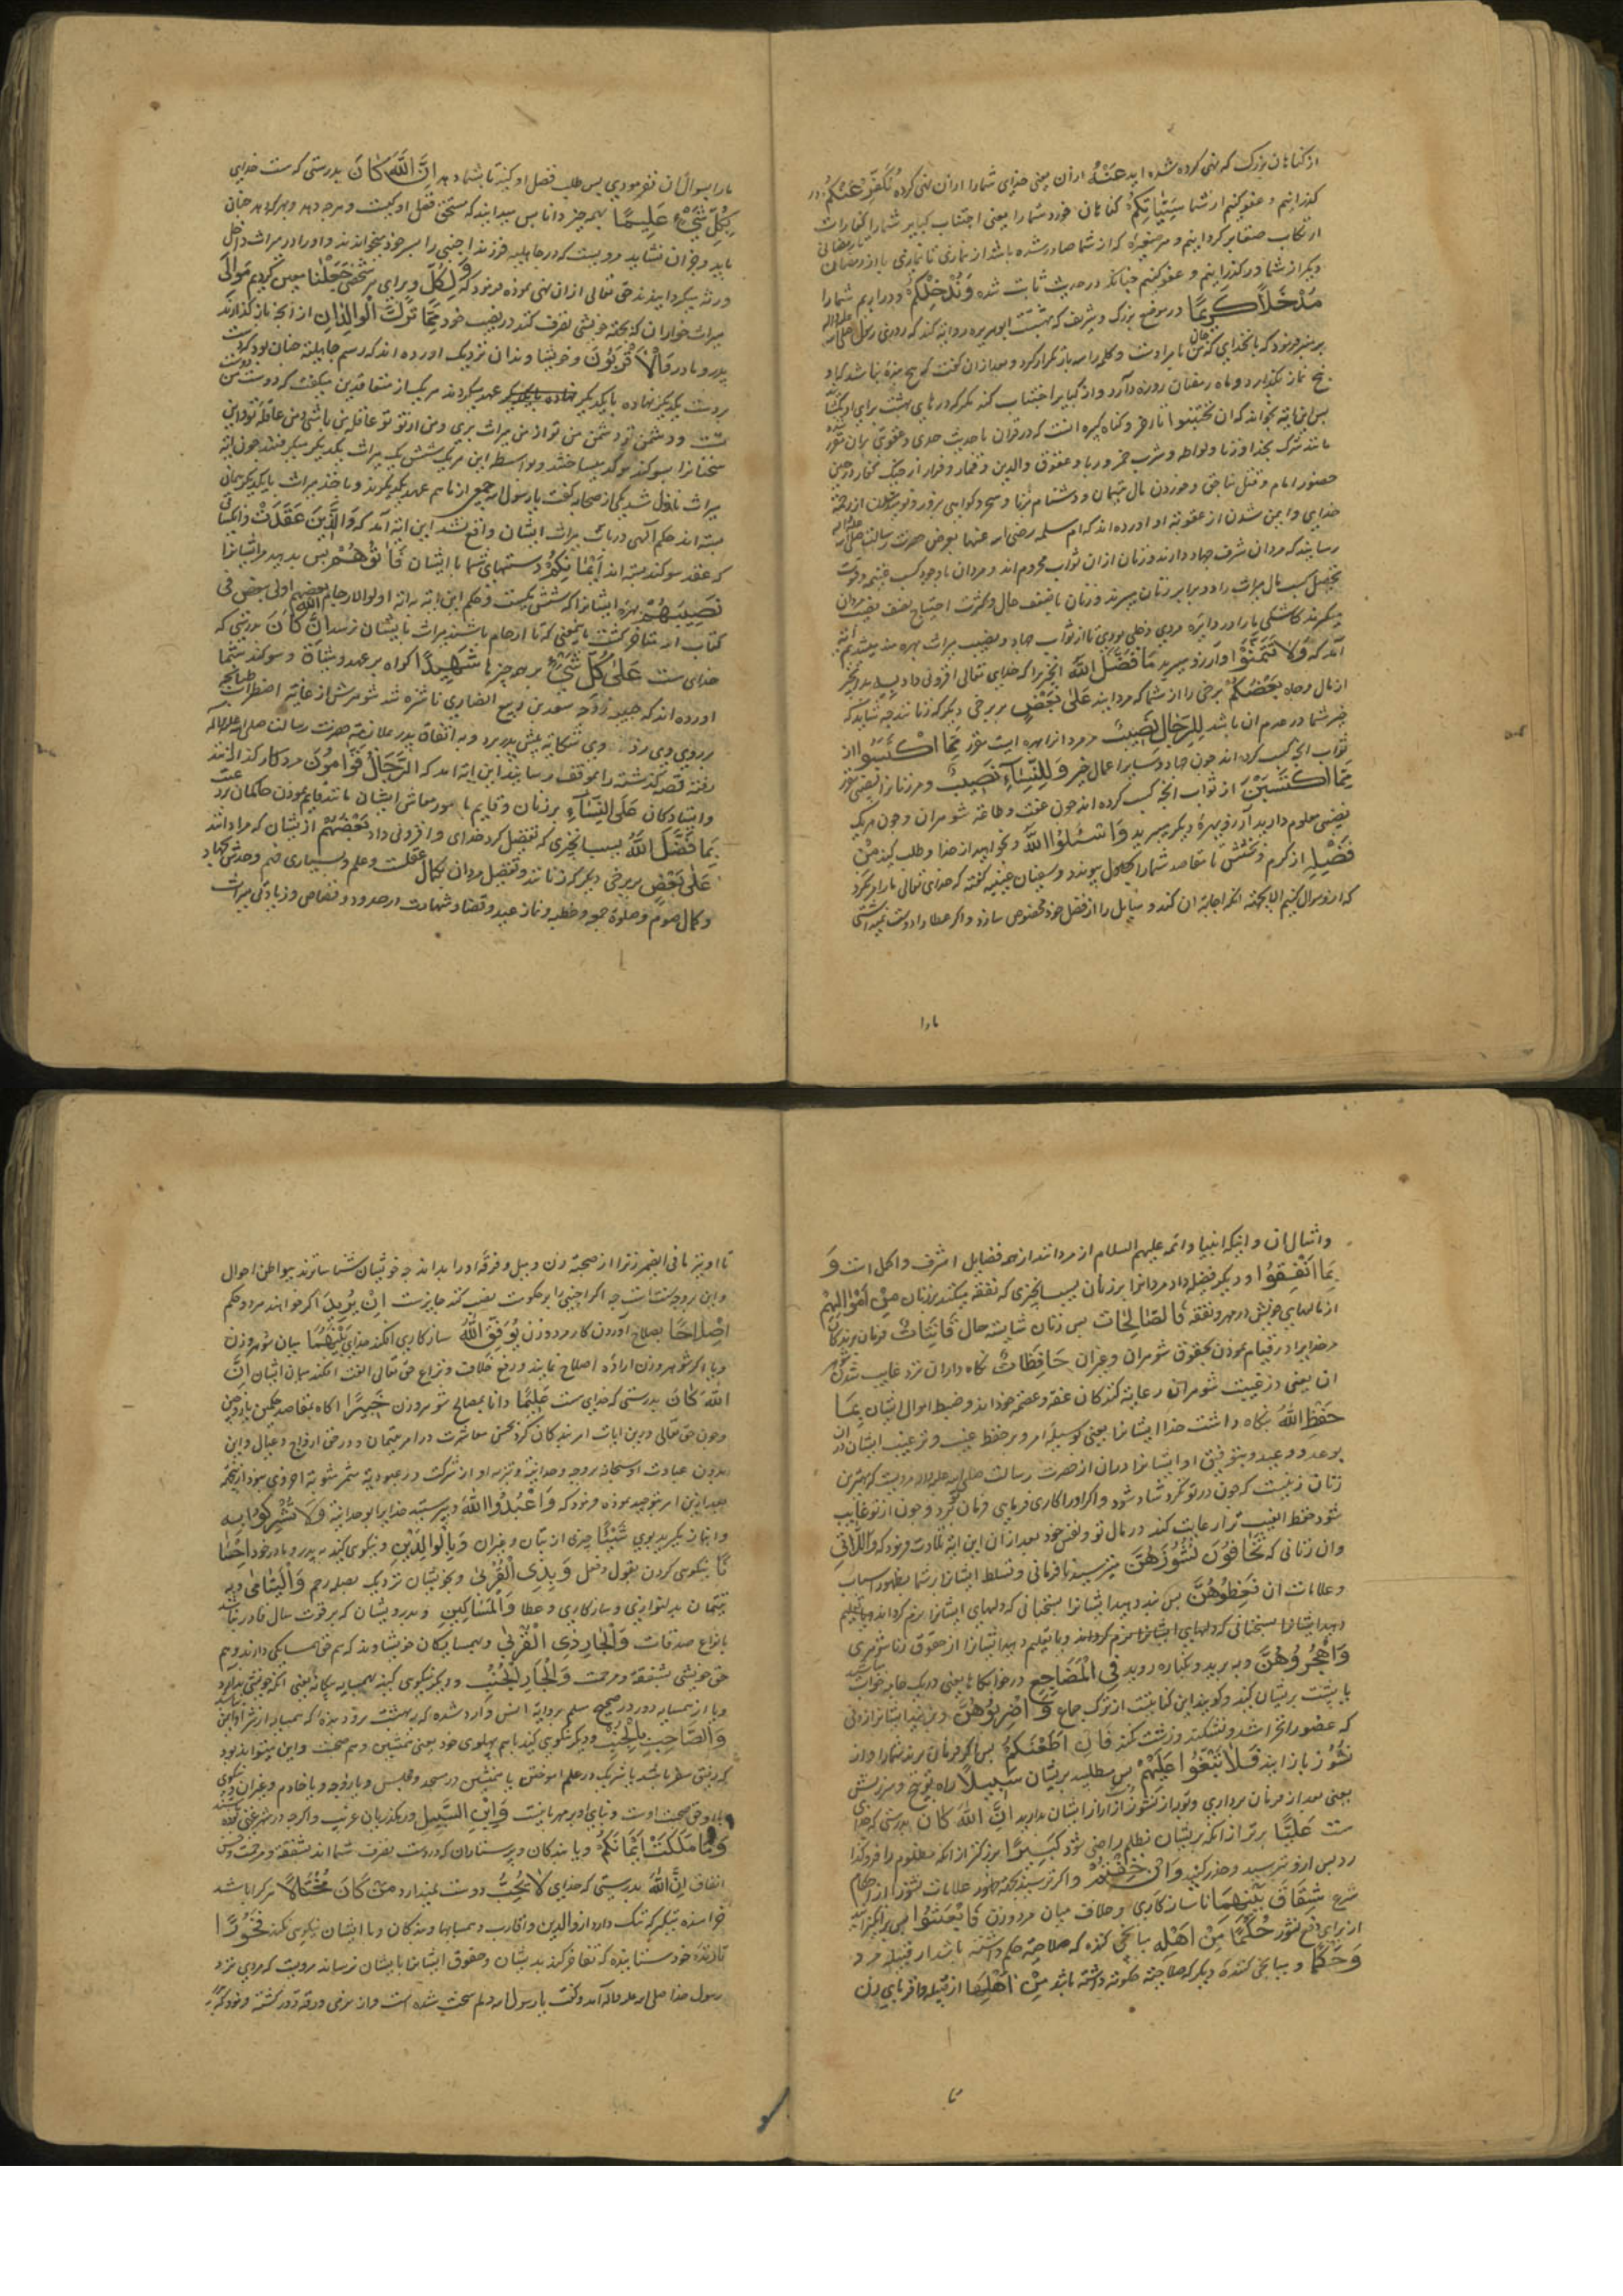 از کناهان بزرک که نهی کرده شده اید عَنْهُ ازان یعنی خدای شمارا ازان نهی کرده نُكَفِّرْ عَنْكُمْ در
کذرانیم و عفو کنیم از شما سَيِّئَاتِكُمْ کناهان خورد شمارا یعنی اجتناب کبایر شمارا کفارات
ارتکاب صغایر کردانیم و هر صغیره که از شما صادر شده باشد از نمازی تا نمازی یا از رمضان
دیکر از شما درکذرانیم و عفو کنیم چنانکه در حدیث ثابت شده وَنُدْخِلْكُمْ و درآریم شمارا
مُدْخَلًا كَرِيمًا در موضع بزرک و شریف که بهشتست ابوهریره روایة کند که روزی رسول
بر منبر فرمود که بانخدایی که جان من بامر اوست و کلمه را سه بار تکرار کرد و بعد ازان کفت که هیچ بنده نباشد که او
پنج نماز بکذارد و ماه رمضان روزه دارد و از کبایر اجتناب کند مکر که درهای بهشت برای او بکشایند
پس این ایة بخواند که ان تجتنبوا تا آخر و کناه کبیره انست که در قران یا حدیث حدی و عقوبتی بران مقرر
مانند شرک بخدا و زنا و لواطه و شرب خمر و ربا و عقوق والدین و قمار و فرار از جنک کفار در حین
حضور امام و قتل ناحق و خوردن مال یتیمان و دشنام بزنا و سحر و کواهی بزور و نومید شدن از رحمة
خدایی و ایمن شدن از عقوبة او اورده اند که ام سلمه رضی الله عنها بعرض حضرت رسالت صلی الله
رسانید که مردان شرف جهاد دارند و زنان ازان ثواب محروم اند و مردان باوجود کسب غنیمه و قوت
تحصیل کسب مال میراث را دو برابر زنان میبرند و زنان با ضعف حال و کثرت احتیاج نصف نصیب مردان
میکیرند کاشکی مارا در دایره مردی دخلی بودی تا از ثواب جهاد و نصیب میراث بهره مند میشدیم ایة
آمد که وَلَا تَتَمَنَّوْا و آرزو مبرید مَا فَضَّلَ اللّٰهُ انچیز را که خدای تعالی افزونی داد
از مال و جاه بَعْضَكُمْ برخی را از شما که مردانند عَلَىٰ بَعْضٍ بر برخی دیکر که زنانند چه شاید که
خیر شما در عدم ان باشد لِلرِّجَالِ نَصِيبٌ مر مردانرا بهره ایست مقرر مِمَّا اكْتَسَبُوا از
ثواب انچه کسب کرده اند چون جهاد و سایر اعمال خیر وَلِلنِّسَاءِ نَصِيبٌ و مر زنانرا نصیبی مقرر
مِمَّا اكْتَسَبْنَ از ثواب انچه کسب کرده اند چون عفت و طاعة شوهران و چون هریک
نصیبی معلوم دارید آرزو بهره دیکر مبرید وَاسْئَلُوا اللّٰهَ و بخواهید از خدا و طلب کنید مِنْ
فَضْلِهِ از کرم و بخشش تا مقاصد شمارا بحصول پیوندد و سفیان عیینه کفته که خدای تعالی مارا امر نکرد
که ازو سوال کنیم الا بجهة انکه اجابة ان کند و سایل را از فضل خود مخصوص سازد و اکر عطا دادن دوست نمیداشتی
مارا
مارا بسوال ان نفرمودی پس طلب فضل او کنید تا بشما دهد اِنَّ اللّٰهَ كَانَ بدرستی که هست خدای
بِكُلِّ شَيْءٍ عَلِيمًا بهمه چیز دانا پس میداند که مستحق فضل او کیست و هر چه دهد و بهر که دهد چنان
باید و جز ان نشاید مرویست که در جاهلیة فرزند اجنبی را پسر خود میخواندند و اورا در میراث داخل
ورثه میکردانیدند حق تعالی ازان نهی نموده فرمود که وَلِكُلٍّ و برای هر شخصی جَعَلْنَا معین کردیم مَوَالِيَ
میراث خواران که بجهة خویشی تصرف کنند در نصیب خود مِمَّا تَرَكَ الْوَالِدَانِ از انچه باز کذارند
پدر و مادر وَالْأَقْرَبُونَ و خویشاوندان نزدیک اورده اند که رسم جاهلیة چنان بود که دست
بر دست یکدیکر نهاده بایکدیکر عهد میکردند هر یک از متعاقدین میکفت که دوست من
تست و دشمن تو دشمن من تو از من میراث بری و من از تو تو عاقله من باشی و من عاقله تو و این
سخنانرا بسوکند موکد میساختند و بواسطه این هریک شش یک میراث یکدیکر میکرفتند چون ایة
میراث نازل شد یکی از صحابه کفت یا رسول الله جمعی از ما هم عهد یکدیکرند و با اخذ میراث بایکدیکر پیمان
بسته اند حکم الهی در باب میراث ایشان واقع نشد این ایة آمد که وَالَّذِينَ عَقَدَتْ و انکسانی
که عقد سوکند بسته اند أَيْمَانُكُمْ دستهای شما با ایشان فَآتُوهُمْ پس بدهید مر ایشانرا
نَصِيبَهُمْ بهره ایشانرا که شش یکست و حکم این ایة بایة اولوا الارحام بعضهم اولی ببعض فی
کتاب الله متاخر کشت بمعنی که تا ارحام باشند میراث بایشان نرسد اِنَّ اللّٰهَ كَانَ بدرستی که
خدای هست عَلَىٰ كُلِّ شَيْءٍ بر همه چیزها شَهِيدًا کواه بر عهد و میثاق و سوکند شما
اورده اند که حبیبه زوجه سعد بن ربیع انصاری ناشزه شد شوهرش از غایة اضطراب طپانچه
بر روی وی زد وی شکایة پیش پدر برد و به اتفاق پدر بملازمة حضرت رسالت صلی الله علیه واله
رفته قصه کذشته را بموقف رسانیدند این ایة امد که الرِّجَالُ قَوَّامُونَ مردان کارکذارانند
و ایستادکان عَلَى النِّسَاءِ بر زنان و قایم بامور معاش ایشان مانند قیام نمودن حاکمان بر رعیت
بِمَا فَضَّلَ اللّٰهُ بسبب انچیزی که تفضیل کرد خدای و افزونی داد بَعْضَهُمْ از ایشان که مردانند
عَلَىٰ بَعْضٍ بر برخی دیکر که زنانند و تفضیل مردان بکمال عقلست و علم و بسیاری فهم و حدس و جهاد
و کمال صوم و صلوة جمعه و خطبه و نماز عید و قضا و شهادت در حدود و قصاص و زیادتی میراث
و امثال ان و اینکه انبیا و ائمه علیهم السلام از مردانند از همه فضایل اشرف و اکمل است وَ
بِمَا أَنْفَقُوا و دیکر فضیلة داد مردانرا بر زنان بسبب انچیزی که نفقه میکنند بر زنان مِنْ أَمْوَالِهِمْ
از مالهای خویش از مهر و نفقه فَالصَّالِحَاتُ پس زنان شایسته حال قَانِتَاتٌ فرمان برندکان
مر خدایرا در قیام نمودن بحقوق شوهران و جز ان حَافِظَاتٌ نکاه داران نزد غایب شدن شوهر
ان یعنی در غیبت شوهران رعایة کنندکان عفة و عصمة خودند و ضبط اموال ایشان بِمَا
حَفِظَ اللّٰهُ بنکاه داشت خدا ایشانرا یعنی بوسیله امر و بر حفظ غیب و ترغیب ایشان دران
بوعد و وعید و بتوفیق او ایشانرا دران از حضرت رسالت صلی الله علیه واله مرویست که بهترین
زنان زنیست که چون درو نکری شاد شود و اکر اورا کاری فرمایی فرمان برد و چون ازو غایب
شوی حفظ الغیب ترا رعایت کند در مال تو و نفس خود بعد ازان این ایة تلاوت فرمود که وَاللَّاتِي
وان زنانی که تَخَافُونَ نُشُوزَهُنَّ میترسید نافرمانی و تسلط ایشانرا بر شما بظهور اسباب
و علامات ان فَعِظُوهُنَّ پس پند دهید ایشانرا بسخنانی که دلهای ایشانرا نرم کرداند و بتعلیم
دهید ایشانرا بسخنانی که دلهای ایشانرا نرم کرداند و با تعلیم دهید ایشانرا از حقوق زناشوهری
وَاهْجُرُوهُنَّ و ببرید و بکناره روید فِي الْمَضَاجِعِ در خوابکاها یعنی در یک جامه خواب مباشید
یا پشت بر ایشان کنید و کویند این کنایتست از ترک جماع وَاضْرِبُوهُنَّ و بزنید ایشانرا زدنی
که عضو را نخراشد و نشکند و زشت نکند فَإِنْ أَطَعْنَكُمْ پس اکر فرمان برند شمارا و از
نشوز باز ایند فَلَا تَبْغُوا عَلَيْهِنَّ پس مطلبید بر ایشان سَبِيلًا راه توبیخ و سرزنش
یعنی بعد از فرمان برداری و توبه از نشوز ازار ایشان مدارید اِنَّ اللّٰهَ كَانَ بدرستی که خدا
ست عَلِيًّا برتر از انکه بر ایشان بظلم راضی شود كَبِيرًا بزرکتر از انکه مظلوم را فروکذا
رد پس ازو بترسید و حذر کنید وَإِنْ خِفْتُمْ و اکر ترسید بجهة ظهور علامات نشوز از حکام
شرع شِقَاقَ بَيْنِهِمَا ناسازکاری و خلاف میان مرد و زن فَابْعَثُوا پس برانکیزید
از برای رفع نشوز حَكَمًا مِنْ أَهْلِهِ میانجی کننده که صلاحیة حکم داشته باشد از قبیله مرد
وَحَكَمًا و میانجی کننده دیکر که صلاحیة حکومة داشته باشد مِنْ أَهْلِهَا از قبیله و اقربای زن
تا
تا او نیز ما فی الضمیر زنرا از صحبة زن و میل و فرقه اورا بداند چه خویشان شناساترند ببواطن احوال
و این بر وجه استحبابست چه اکر اجنبی را بر حکومت نصب کنند جایزست اِنْ يُرِيدَا اکر خواهند مرد و حکم
اِصْلَاحًا بصلاح آوردن کار مرد و زن يُوَفِّقِ اللّٰهُ سازکاری افکند خدای بَيْنَهُمَا میان شوهر و زن
و یا اکر شوهر و زن اراده اصلاح نمایند و رفع خلاف و نزاع حق تعالی الفت افکند میان ایشان اِنَّ
اللّٰهَ كَانَ بدرستی که خدای هست عَلِيمًا دانا بمصالح شوهر و زن خَبِيرًا اکاه بمقاصد حکمین
و چون حق تعالی درین ایات امر بندکان کرد بحسن معاشرت در امر یتیمان و در حق ازواج و عیال و این
بدون عبادت او سبحانه بر وجه وحدانیة و تنزیه او از شرکت در عبودیة مثمر مثوبة اخروی نبود
بعد ازین امر بتوحید نموده فرمود که وَاعْبُدُوا اللّٰهَ و بپرستید خدایرا بوحدانیة وَلَا تُشْرِكُوا بِهِ
و انباز مکیرید بوی شَيْئًا چیزی از بتان و غیران وَبِالْوَالِدَيْنِ و نیکویی کنید به پدر و مادر خود اِحْسَا
نًا نیکویی کردن بقول و فعل وَبِذِي الْقُرْبَىٰ و بخویشان نزدیک بصله رحم وَالْيَتَامَىٰ و به
یتیمان بدلنوازی و سازکاری و عطا وَالْمَسَاكِينِ و بدرویشان که بر قوت سال قادر نباشند
بانواع صدقات وَالْجَارِ ذِي الْقُرْبَىٰ و بهمسایکان خویشاوند که هم حق همسایکی دارند و هم
حق خویشی بشفقة و مرحمت وَالْجَارِ الْجُنُبِ و دیکر نیکویی کنید بهمسایه بیکانه یعنی انکه خویشی ندارد
و یا از همسایه دور در صحیح مسلم بروایة انس وارد شده که به بهشت نرود بنده که همسایه از شر او ایمن نباشد
وَالصَّاحِبِ بِالْجَنْبِ و دیکر نیکویی کنید باهم پهلوی خود یعنی همنشین و هم صحبت و این میتواند بود
که رفیق سفر باشد یا شریک در علم اموختن یا همنشین در مسجد و مجلس و یا زوجه و یا خادم و غیران
وَابْنِ السَّبِيلِ و رهکذریان غریب و اکر چه در شهر
وَمَا مَلَكَتْ أَيْمَانُكُمْ و با بندکان و پرستاران که در دست تصرف شما اند بشفقة و مرحمت و حسن
انفاق اِنَّ اللّٰهَ بدرستی که خدای لَا يُحِبُّ دوست نمیدارد مَنْ كَانَ مُخْتَالًا هر که را باشد
خرامنده بتکبر که ننک دارد از والدین و اقارب و همسایها و بندکان و با ایشان نیکویی نکند فَخُورًا
نازنده خودستاینده که تفاخر کند بدیشان و حقوق ایشانرا بایشان نرساند مرویست که مردی نزد
رسول خدا صلی الله علیه واله آمد و کفت یا رسول الله دلم سخت شده است